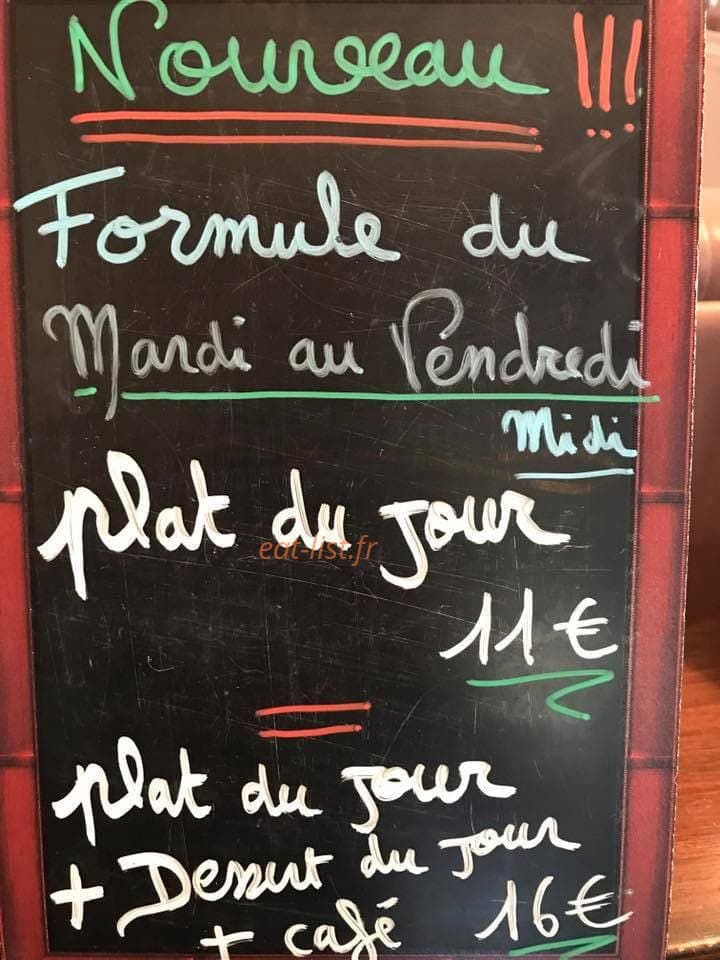 Nouveau !!!
Formule du
Mardi au Vendredi
Midi
plat du jour
eat-list.fr
11€
plat du jour
+ Dessert du jour
+ café 16€